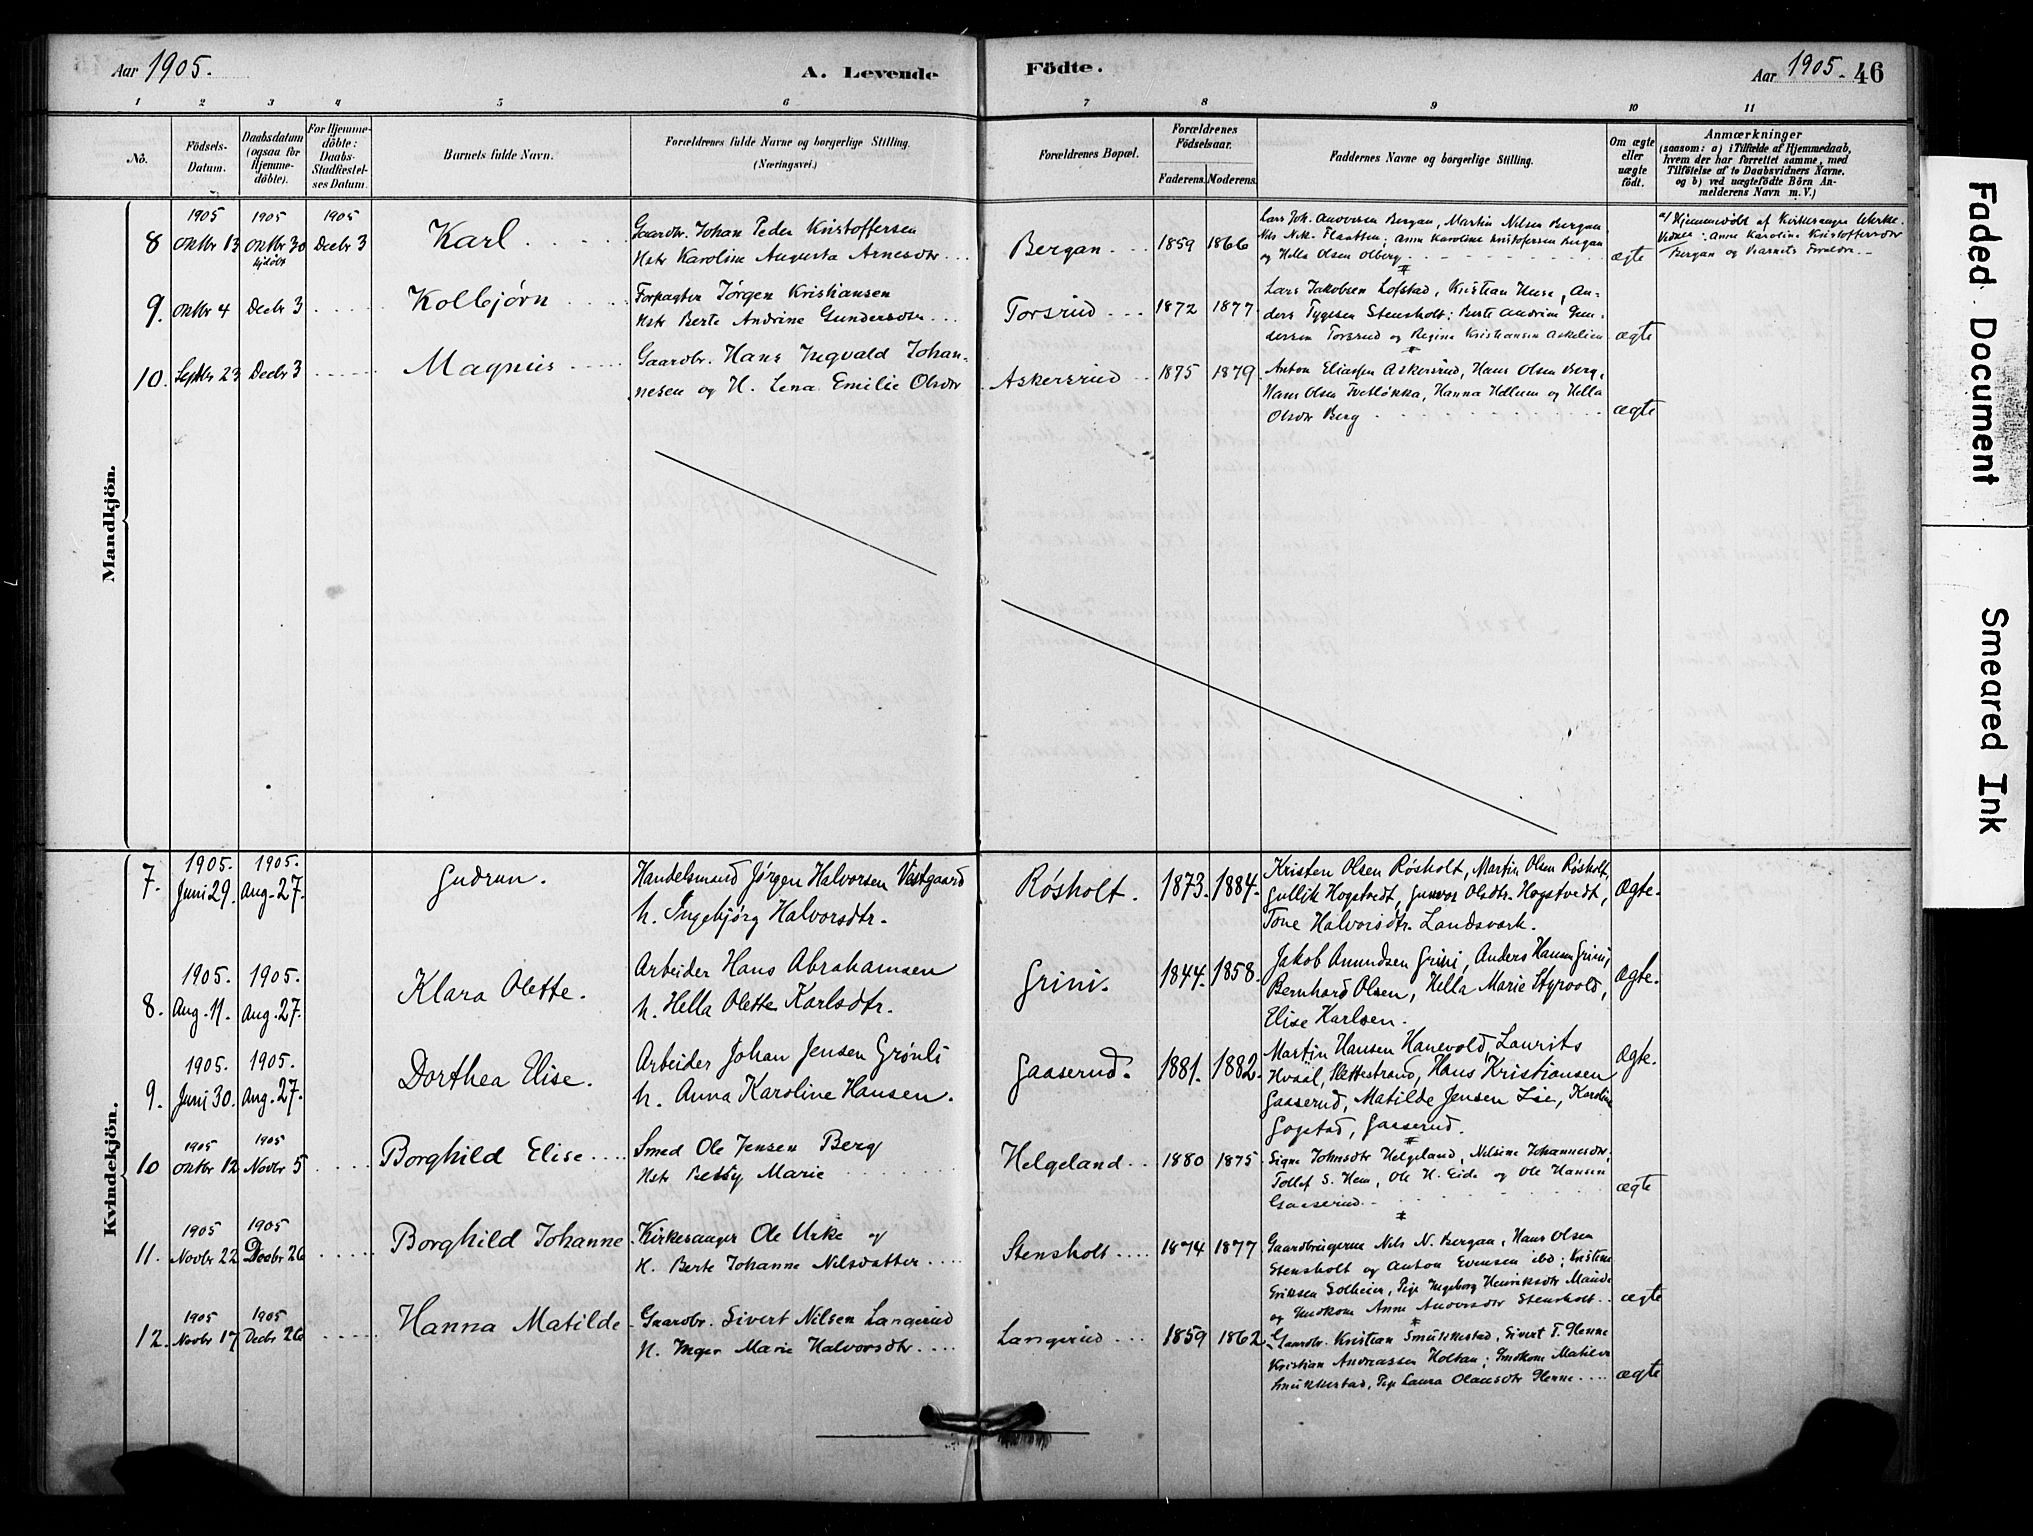 Aar 1905.
A. Levende Födte.
Aar 1905. 46
1 2 3 4 5 6 7 8 9 10 11
No.
Födsels-Datum.
Daabsdatum (ogsaa for Hjemme-döbte).
For Hjemme-döbte: Daabs-Stadfæstel-ses Datum.
Barnets fulde Navn.
Forældrenes fulde Navne og borgerlige Stilling.
(Næringsvei.)
Forældrenes Bopæl.
Forældrenes Födselsaar.
Faderens. Moderens.
Faddernes Navne og borgerlige Stilling.
Om ægte eller uægte födt.
Anmærkninger
(saasom: a) i Tilfælde af Hjemmedaab,
hvem der har forrettet samme, med
Tilföielse af to Daabsvidners Navne,
og b) ved uægtefödte Börn An-
melderens Navn m. V.)
Mandkjön.
8 1905 Oktbr 13 1905 Oktbr 30 hjdöbt 1905 Decbr 3 Karl
Gaardbr. Johan Peder Kristoffersen
Hstr Karoline Augusta Arnesdtr
Bergan 1859 1866
Lars Joh. Andersen Bergan, Martin Nilsen Bergan,
Nils Nik. Flaatten; Anne Karoline Kristofersen Bergan
og Hella Olsen Olberg
ægte
a/ Hjemmedöbt af Kirkesanger Urke.
Vidner: Anne Karoline Kristoffersdtr
Bergan og Barnets Forældre.
9. Oktbr 4 Decbr 3 Kolbjørn
Forpagter Jörgen Kristiansen
Hstr Berte Andrine Gundersdtr
Torsrud 1872 1877
Lars Jakobsen Lofstad, Kristian Huse, An-
ders Tygesen Stensholt; Berte Andrine Gun-
dersen Torsrud og Regine Kristiansen Askelien
ægte
10. Septbr 23 Decbr 3 Magnus
Gaardbr. Hans Ingvald Johan-
nesen og H. Lena Emilie Olsdtr
Askersrud 1875 1879
Anton Eliassen Askersrud, Hans Olsen Berg,
Hans Olsen Tvetløkka, Hanna Hellum og Hella
Olsdtr Berg
ægte
Kvindekjön.
7. 1905. Juni 29. 1905. Aug. 27. Gudrun.
Handelsmand Jörgen Halvorsen Vestgaard
h. Ingebjörg Halvorsdtr.
Røsholt. 1873. 1884.
Kristen Olsen Røsholt, Martin Olsen Røsholt,
Gullik Hogstvedt, Gunvor Olsdtr. Hogstvedt,
Tone Halvorsdtr. Landsverk.
Ægte.
8. 1905. Aug. 11. 1905. Aug. 27. Klara Olette.
Arbeider Hans Abrahamsen
h. Hella Olette Karlsdtr.
Grini. 1844. 1858.
Jakob Amundsen Grini, Anders Hansen Grini,
Bernhard Olsen, Hella Marie Styrvold,
Elise Karlsen.
Ægte.
9. 1905. Juni 30. 1905. Aug. 27. Dorthea Elise.
Arbeider Johan Jensen Grønli
h. Anna Karoline Hansen.
Gaaserud. 1881. 1882.
Martin Hansen Hanevold, Laurits
Hvaal, Slettestrand, Hans Kristiansen
Gaaserud, Matilde Jensen Lie, Karoline
Gogstad, Gaaserud.
Ægte.
10 1905 Oktbr 12 1905 Novbr 5 Borghild Elise
Smed Ole Jensen Berg
Hstr Betsy Marie
Helgeland 1880 1875
Signe Johnsdtr Helgeland, Nilsine Johannesdtr,
Tollef S. Hem, Ole H. Eide og Ole Hansen
Gaaserud
ægte
11. 1905 Novbr 22 1905 Decbr 26 Borghild Johanne
Kirkesanger Ole Urke og
H. Berte Johanne Nilsdatter
Stensholt 1874 1877
Gaardbrugerne Nils N. Bergan, Hans Olsen
Stensholt og Anton Evensen ibd; Kristine
Eriksen Solheier, Pige Ingeborg Henriksdtr
og Gmdkone Anne Andersdtr Stensholt
ægte
12. 1905 Novbr 17 1905 Decbr 26 Hanna Matilde
Gaardbr. Sivert Nilsen Langerud
H. Inger Marie Halvorsdtr
Langerud 1859 1862
Gaardbr. Kristian Smukkestad, Sivert T. Glenne
Kristian Andreassen Holtan; Gmdkone Matilde
Smukkestad, Pige Laura Olausdtr Glenne
ægte
Faded Document
Smeared Ink